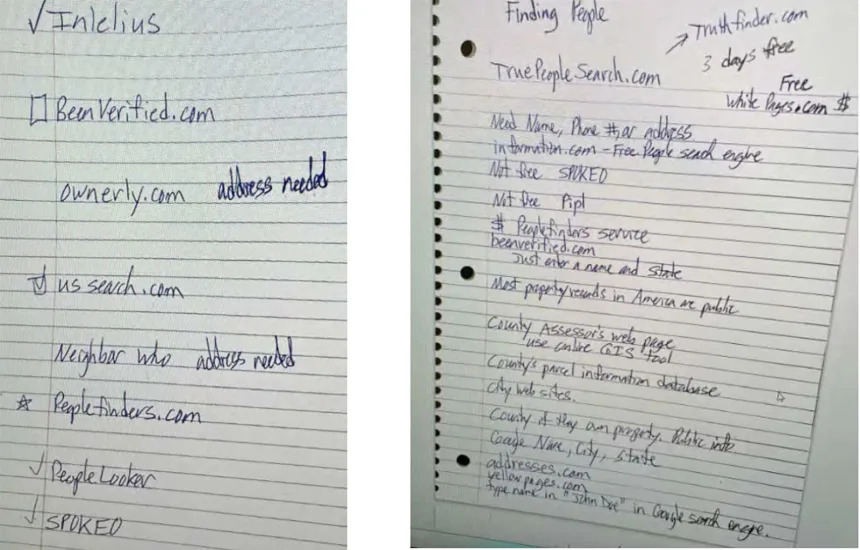 ✓ Intelius
☐ BeenVerified.com
ownerly.com address needed
☑ us search.com
Neighbar who address needed
☆ Peoplefinders.com
✓ PeopleLooker
✓ SPOKEO
Finding People
→ Truthfinder.com
3 days free
TruePeopleSearch.com
Free
White Pages.com $
Need Name, Phone #, or address
information.com - Free People search engine
Not free SPOKEO
Not free Pipl
$ Peoplefinders service
beenverified.com
Just enter a name and state
Most property records in America are public
County Assessor's web page
use online GIS tool
County's parcel information database
City web sites.
County if they own property. Public info
Google Name, City, State
addresses.com
yellowpages.com
type name in "John Doe" in Google search engine.